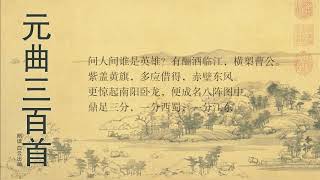 元曲三百首
问人间谁是英雄？有酾酒临江，横槊曹公。
紫盖黄旗，多应借得，赤壁东风。
更惊起南阳卧龙，便成名八阵图中。
鼎足三分，一分西蜀，一分江东。